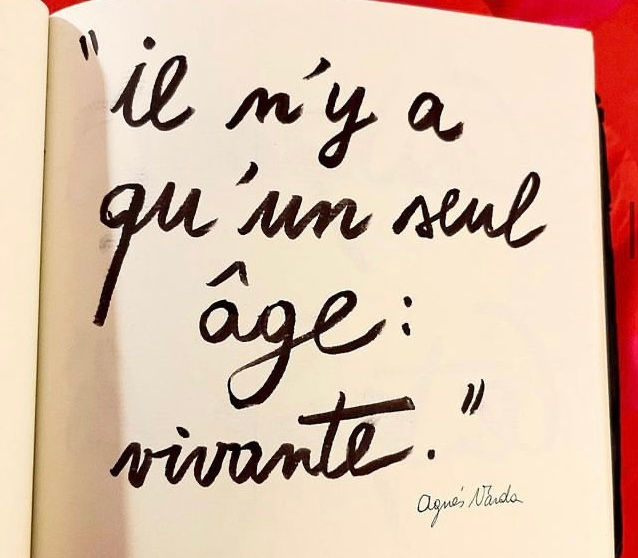 "il n'y a
qu'un seul
âge:
vivante."
Agnès Varda